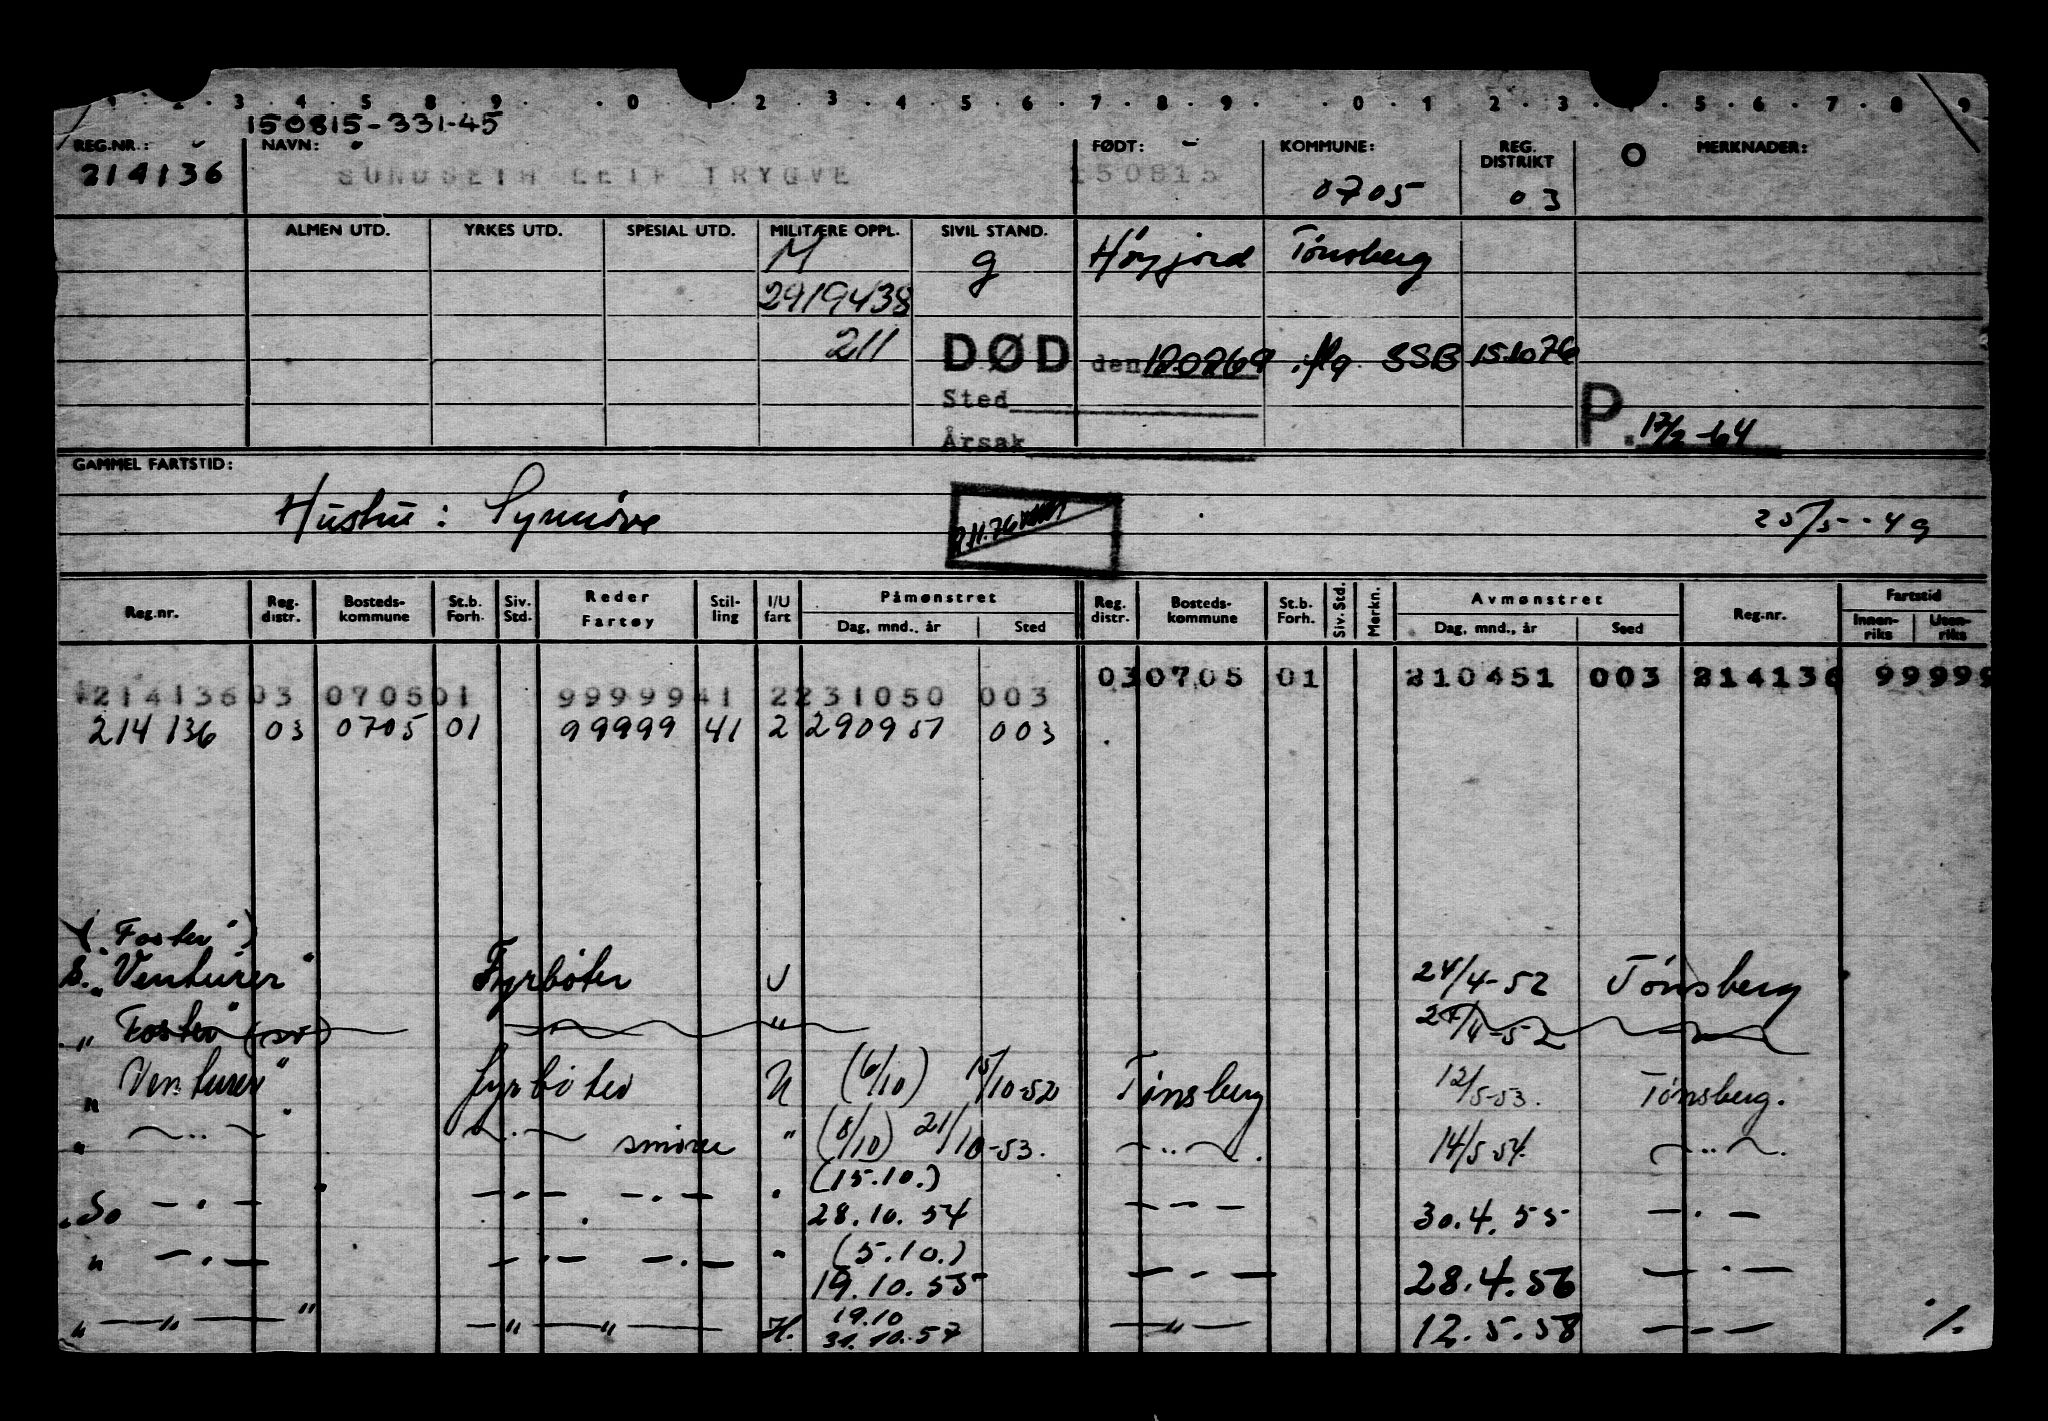 1 . 2 . 3 . 4 . 5 8 . 9 . . 0 . 1 . 2 . 3 . 4 . 5 . 6 . 7 . 8 . 9 . . 0 . 1 . 2 . 3 . . 5 . 6 . 7 . 8 . 9
150815-331-45
REG.NR.: NAVN: FØDT: KOMMUNE: REG. DISTRIKT MERKNADER:
214136 SUNDSETH LEIF TRYGVE 150815 0705 03
ALMEN UTD. YRKES UTD. SPESIAL UTD. MILITÆRE OPPL. SIVIL STAND.
M g Høyjord Tønsberg
2919438
211 DØD den iflg. SSB 15.10.76
Sted
Årsak P. 17/2-64
GAMMEL FARTSTID:
Hustru: Synnøve 9.11.76 25/5-49
Reg.nr. Reg. distr. Bosteds-kommune St.b. Forh. Siv. Std. Reder Fartøy Stil-ling I/U fart Påmønstret Dag, mnd., år Sted Reg. distr. Bosteds-kommune St.b. Forh. Siv. Std. Merkn. Avmønstret Dag, mnd., år Sted Reg.nr. Fartstid Innen-riks Uten-riks
030705 01 210451 003 214136 99999
21413603 070501 9999941 2231050 003
214136 03 0705 01 99999 41 2 290951 003
("Foster")
S. "Venturer" Fyrbøter U 24/4-52 Tønsberg
" Foster" " 24/4-52
" Venturer" fyrbøter U (6/10) 15/10-52 Tønsberg 12/5-53. Tønsberg.
" - " - - " - smører " (8/10) 21/10-53. - " - . 14/5 54. - " - .
(15.10.)
"So - " - " - " - - " - " 28.10.54 - - - 30.4.55 - " -
(5.10.)
" - " - - " - - " - " 19.10.55 - " - 28.4.56 - " -
19.10
" - " - " - " - " - 31.10.57 - " - 12.5.58 - " - ./.